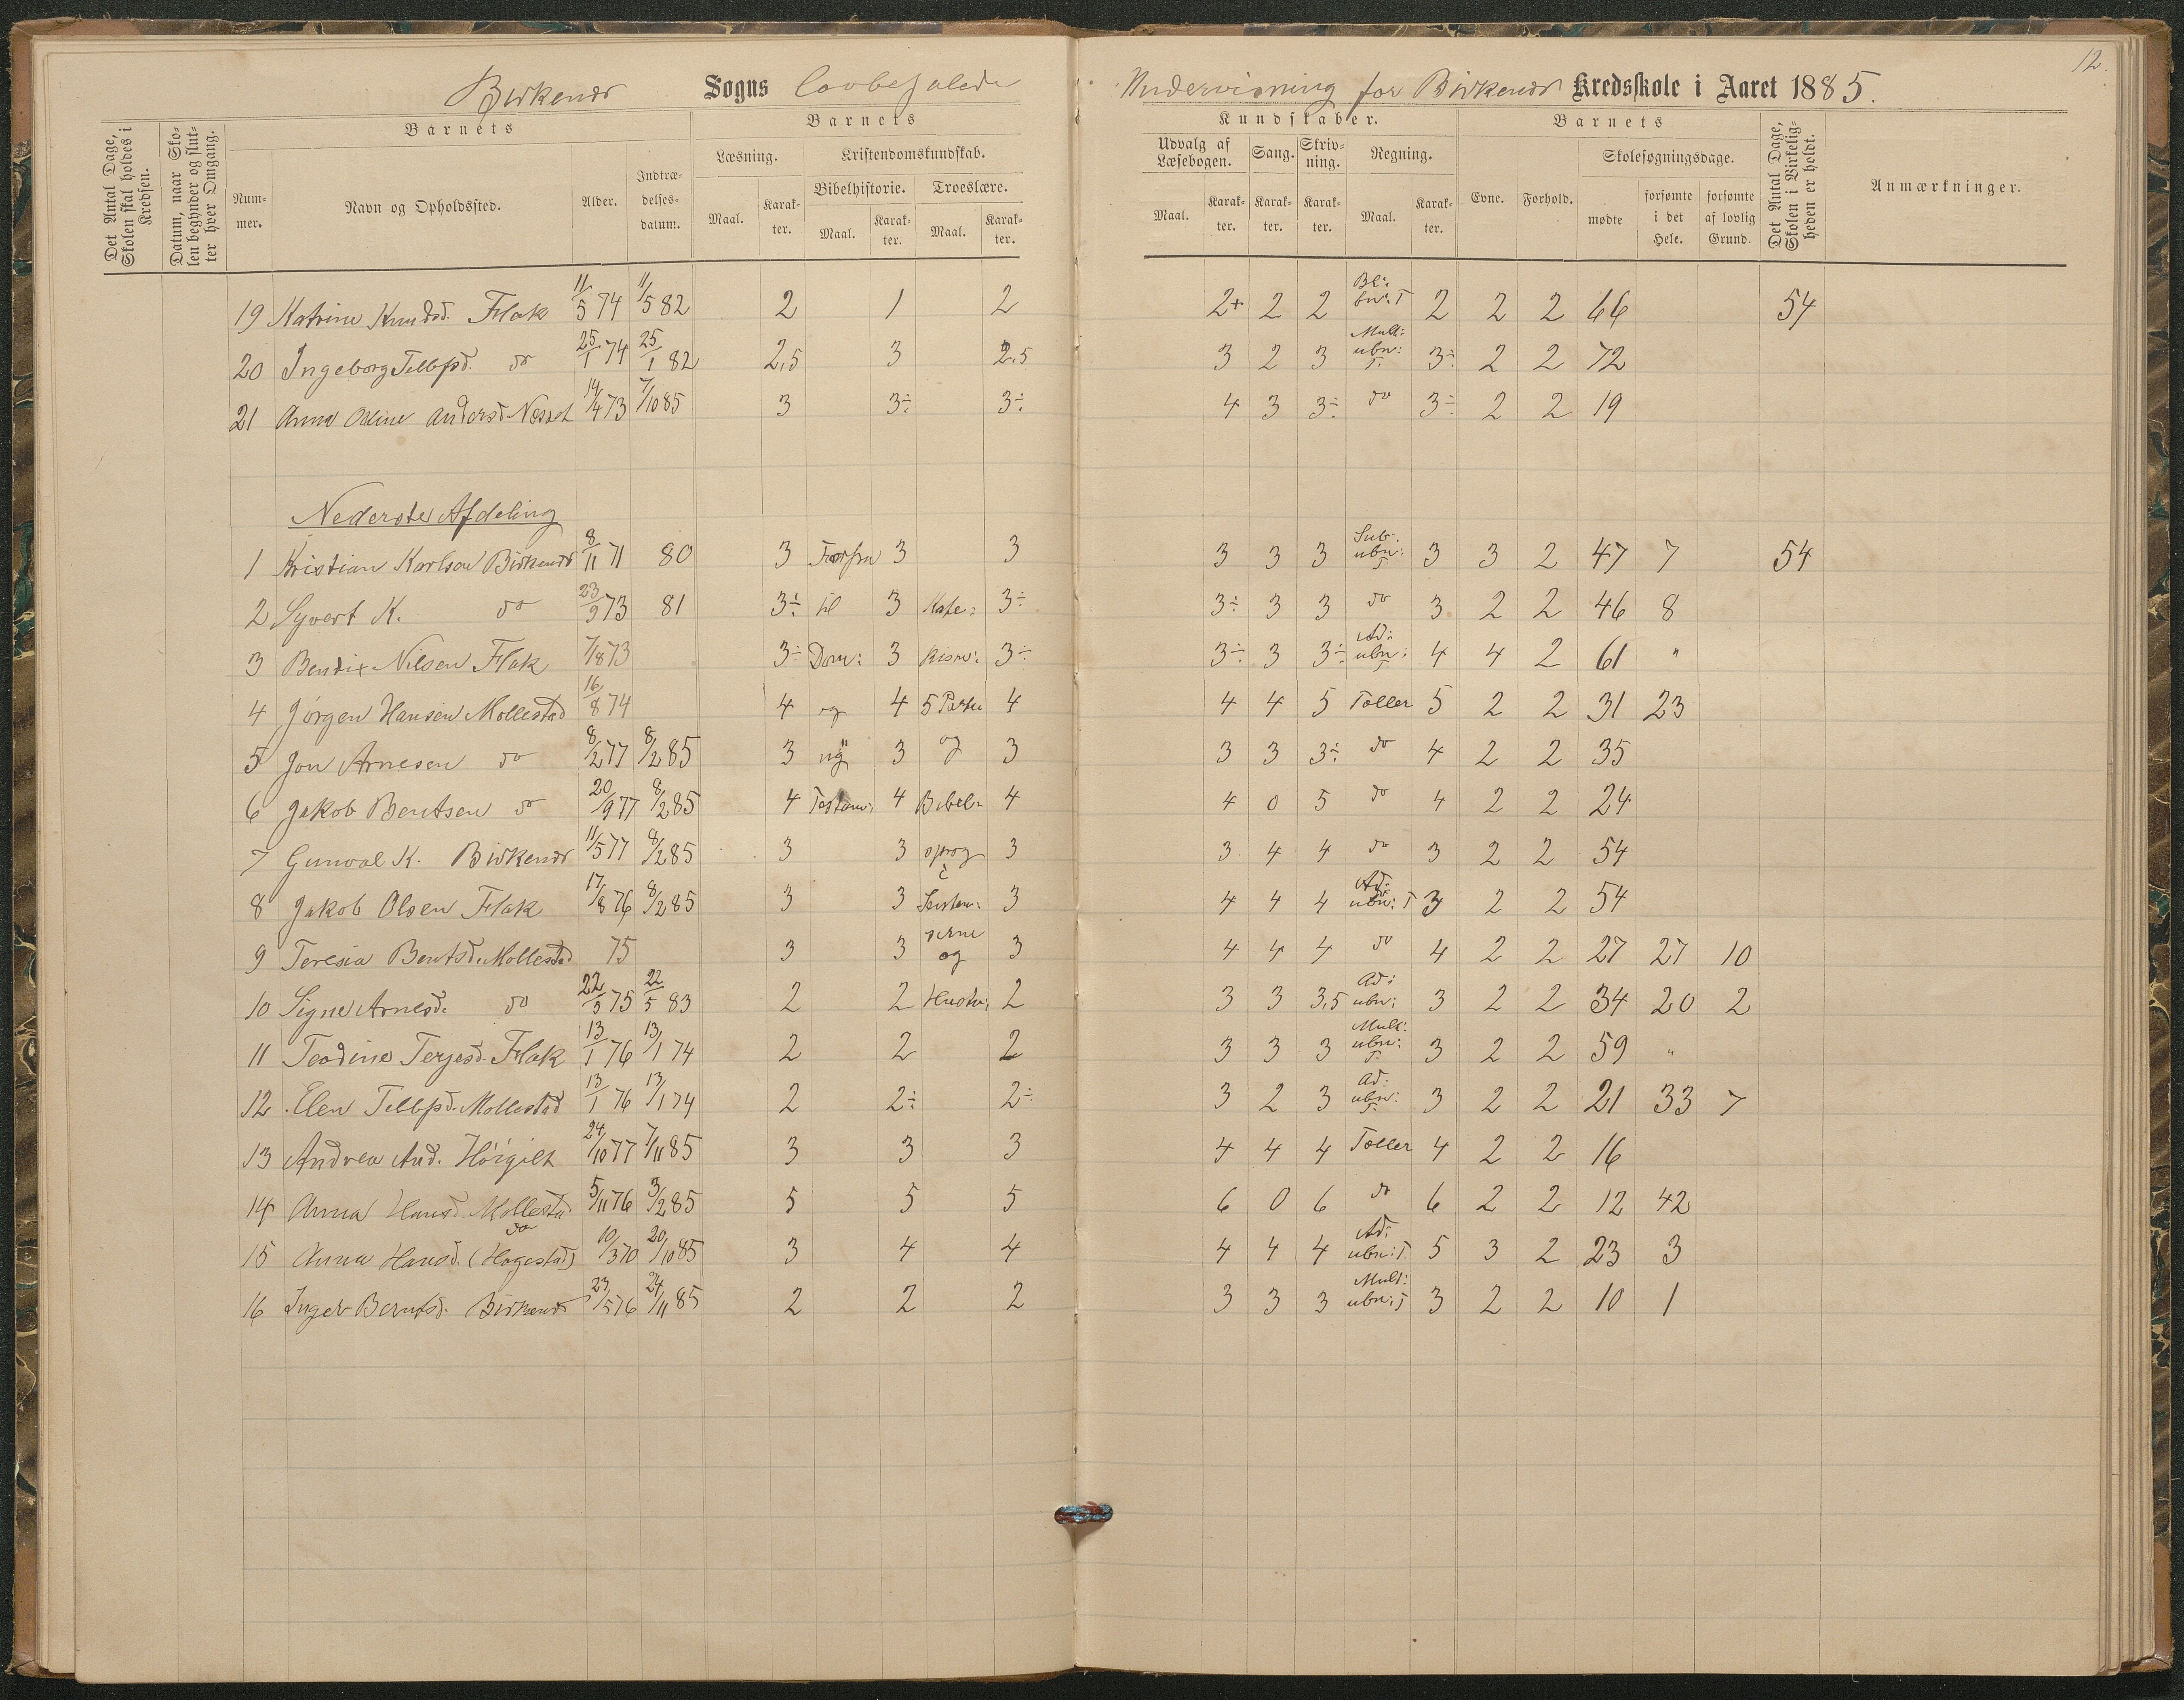 12.
Birkenes Sogns lovbefalede Undervisning for Birkenes Kredsskole i Aaret 1885.
Det Antal Dage, Skolen skal holdes i Kredsen.
Datum, naar Skolen begynder og slutter hver Omgang.
Barnets
Nummer. Navn og Opholdssted. Alder. Indtrædelsesdatum.
Barnets Kundskaber.
Læsning. Maal. Karakter.
Kristendomskundskab.
Bibelhistorie. Maal. Karakter. Troeslære. Maal. Karakter.
Udvalg af Læsebogen. Maal. Karakter. Sang. Karakter. Skrivning. Karakter. Regning. Maal. Karakter.
Barnets
Evne. Forhold. Skolesøgningsdage. mødte forsømte i det Hele. forsømte af lovlig Grund.
Det Antal Dage, Skolen i Virkeligheden er holdt.
Anmærkninger.
19 Katrine Knudsd. Flak 11/5 74 11/5 82 2 1 2 2+ 2 2 Bl: bn: T 2 2 2 66 54
20 Ingeborg Tellefsd. do 25/1 74 25/1 82 2,5 3 2,5 3 2 3 Mult: ubn: T. 3÷ 2 2 72
21 Anna Oline Andersd. Næset 14/4 73 7/10 85 3 3÷ 3÷ 4 3 3÷ do 3÷ 2 2 19
Nederste Afdeling
1 Kristian Karlsen Birkenes 8/11 71 80 3 Forfra 3 3 3 3 3 Sub. ubn: T. 3 3 2 47 7 54
2 Syvert K. do 23/9 73 81 3÷ til 3 Kate= 3÷ 3÷ 3 3 do 3 2 2 46 8
3 Bendix Nilsen Flak 7/8 73 3÷ Dom: 3 kism: 3÷ 3÷ 3 3÷ Ad: ubn: T. 4 4 2 61 "
4 Jørgen Hansen Mollestad 16/8 74 4 og 4 5 Parter 4 4 4 5 Tæller 5 2 2 31 23
5 Jon Arnesen do 8/2 77 8/2 85 3 ny 3 og 3 3 3 3÷ do 4 2 2 35
6 Jakob Bentsen do 20/9 77 8/2 85 4 Testam: 4 Bibel= 4 4 0 5 do 4 2 2 24
7 Gunval K. Birkenes 11/5 77 8/2 85 3 3 sprog 3 3 4 4 do 3 2 2 54
8 Jakob Olsen Flak 17/8 76 8/2 85 3 3 3 4 4 4 Ad: ubn: T 3 2 2 54
9 Teresia Bentsd. Mollestad 75 3 3 og 3 4 4 4 do 4 2 2 27 27 10
10 Signe Arnesd. do 22/5 75 22/5 83 2 2 Hustv: 2 3 3 3,5 Ad: ubn: 3 2 2 34 20 2
11 Teodine Terjesd. Flak 13/1 76 13/1 74 2 2 2 3 3 3 Mult: ubn: T. 3 2 2 59 "
12 Elen Tellefsd. Mollestad 13/1 76 13/1 74 2 2÷ 2÷ 3 2 3 Ad: ubn: T. 3 2 2 21 33 7
13 Andrea And. Høigilt 24/10 77 7/11 85 3 3 3 4 4 4 Tæller 4 2 2 16
14 Anna Hansd. Mollestad 5/11 76 3/2 85 5 5 5 6 0 6 do 6 2 2 12 42
15 Anna Hansd. do (Hagestad) 10/3 70 20/10 85 3 4 4 4 4 4 Ad: ubn: T. 5 3 2 23 3
16 Inger Berntsd. Birkenes 23/5 76 24/11 85 2 2 2 3 3 3 Mult: ubn: T 3 2 2 10 1